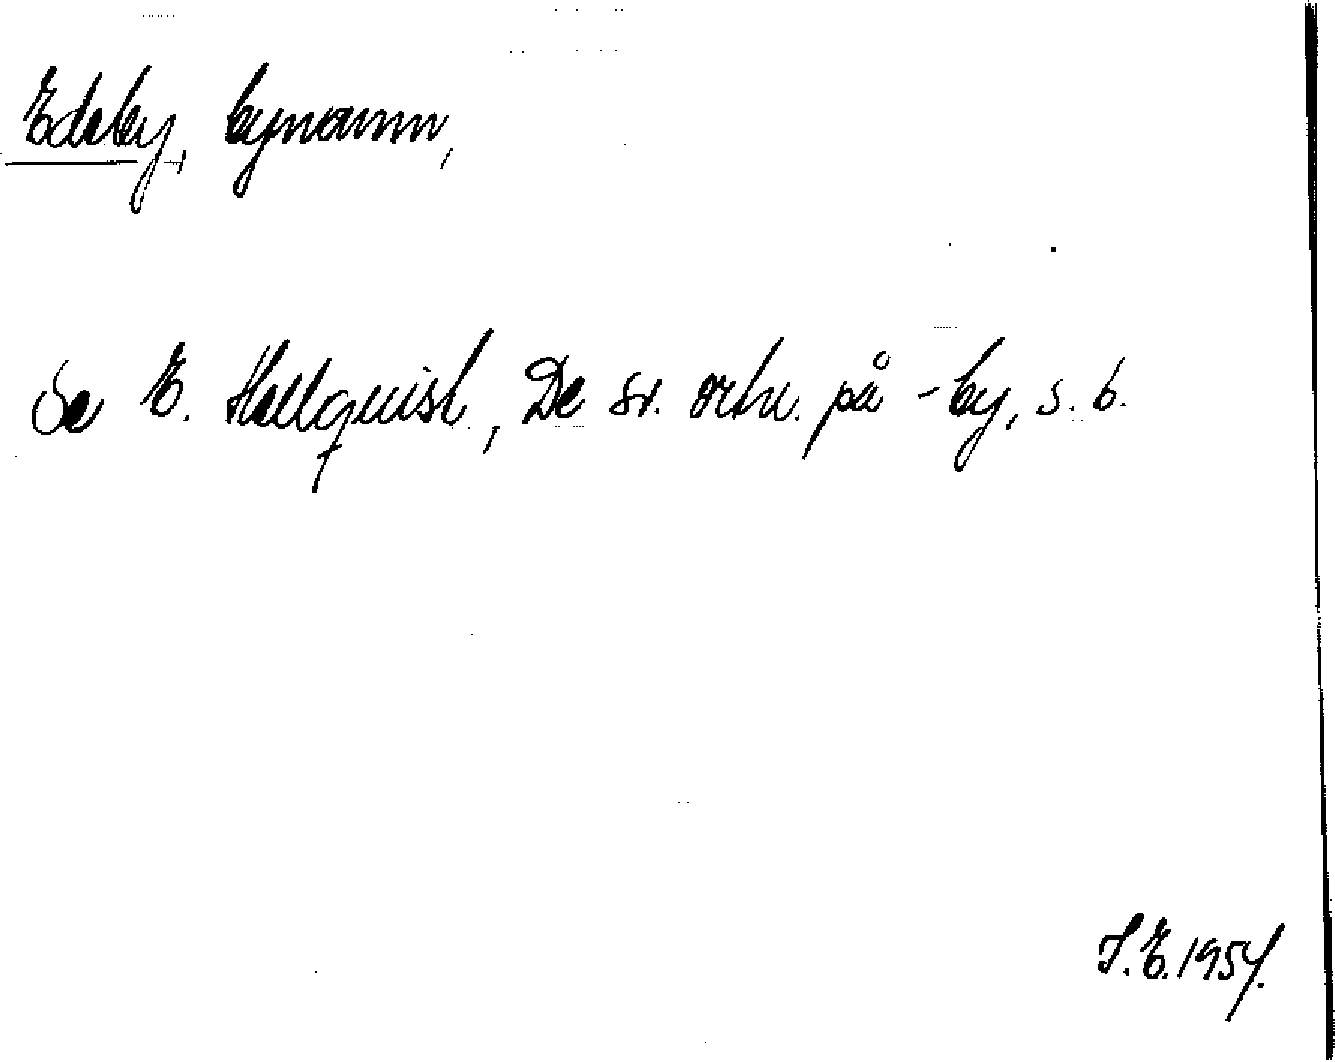 Edeby, bynamn,
Se E. Hellquist, De sv. ortn. på -by, s. 6.
S.E. 1954.